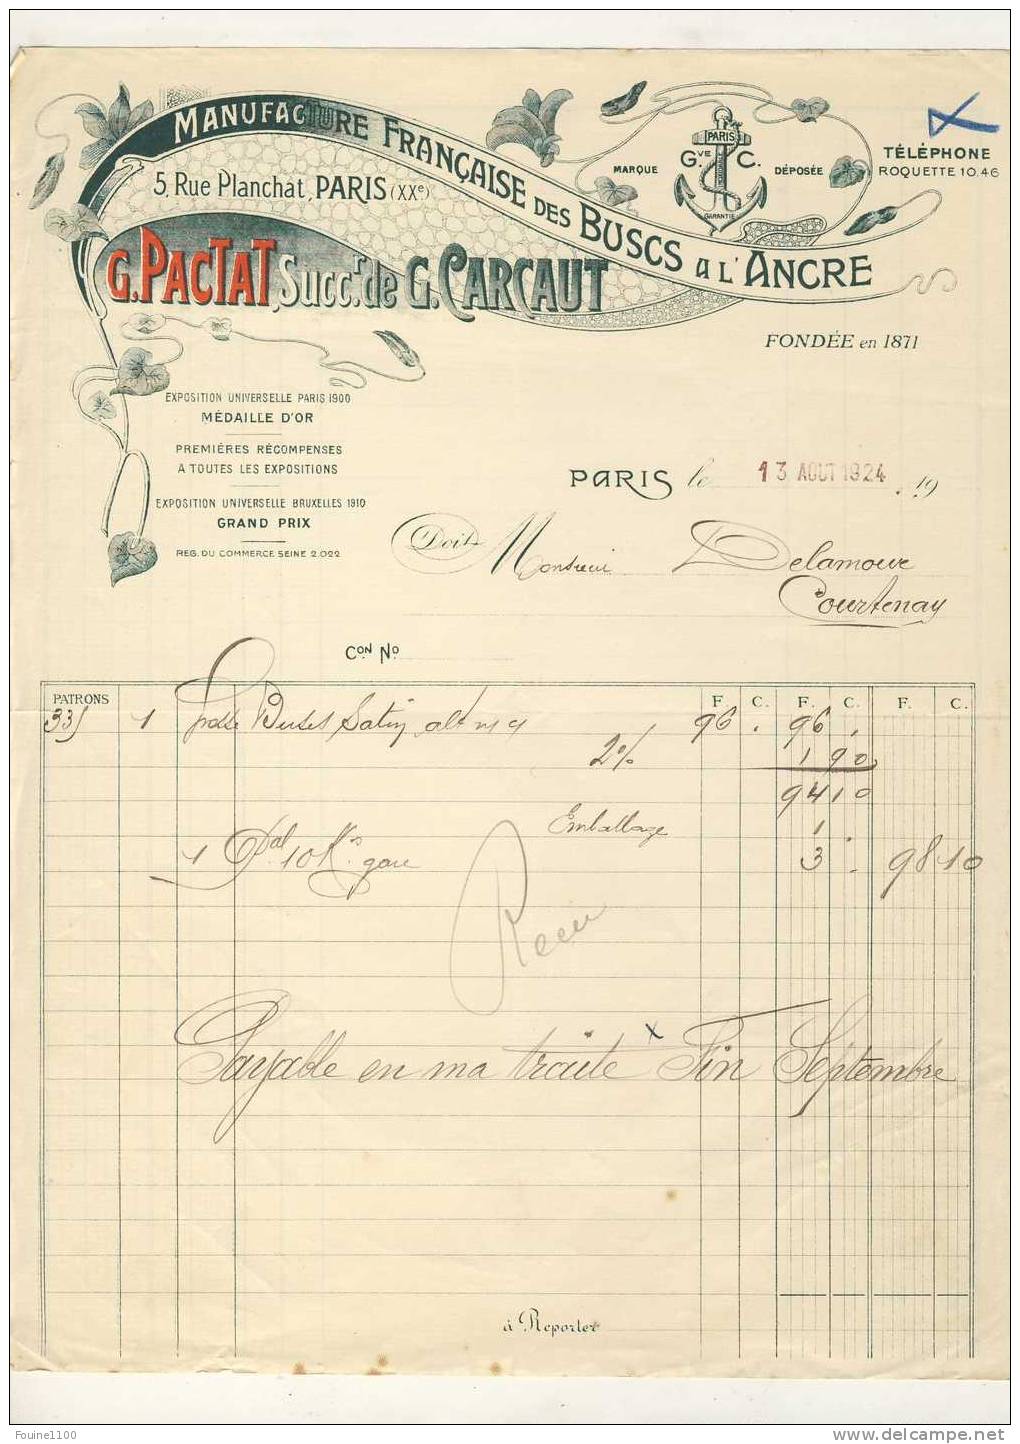 MANUFACTURE FRANÇAISE DES BUSCS A L'ANCRE
5, Rue Planchat, PARIS (XXe)
G. PACTAT, Succr. de G. CARCAUT
MARQUE DÉPOSÉE
PARIS
Gve C.
GARANTIE
TÉLÉPHONE
ROQUETTE 10.46
FONDÉE en 1871
EXPOSITION UNIVERSELLE PARIS 1900
MÉDAILLE D'OR
PREMIÈRES RÉCOMPENSES
A TOUTES LES EXPOSITIONS
EXPOSITION UNIVERSELLE BRUXELLES 1910
GRAND PRIX
REG. DU COMMERCE SEINE 2.022
PARIS le 13 AOUT 1924 . 19
Doit Monsieur Delamour
Courtenay
CON NO
PATRONS F. C. F. C. F. C.
335 1 Grosse Buscs Satin 96 . 96 .
2% 1 90
94 10
Emballage 1 .
1 Pal 10 Ks gare 3 . 98 10
Recu
Payable en ma traite x Fin Septembre
à Reporter
Fouine1100
www.delcampe.net